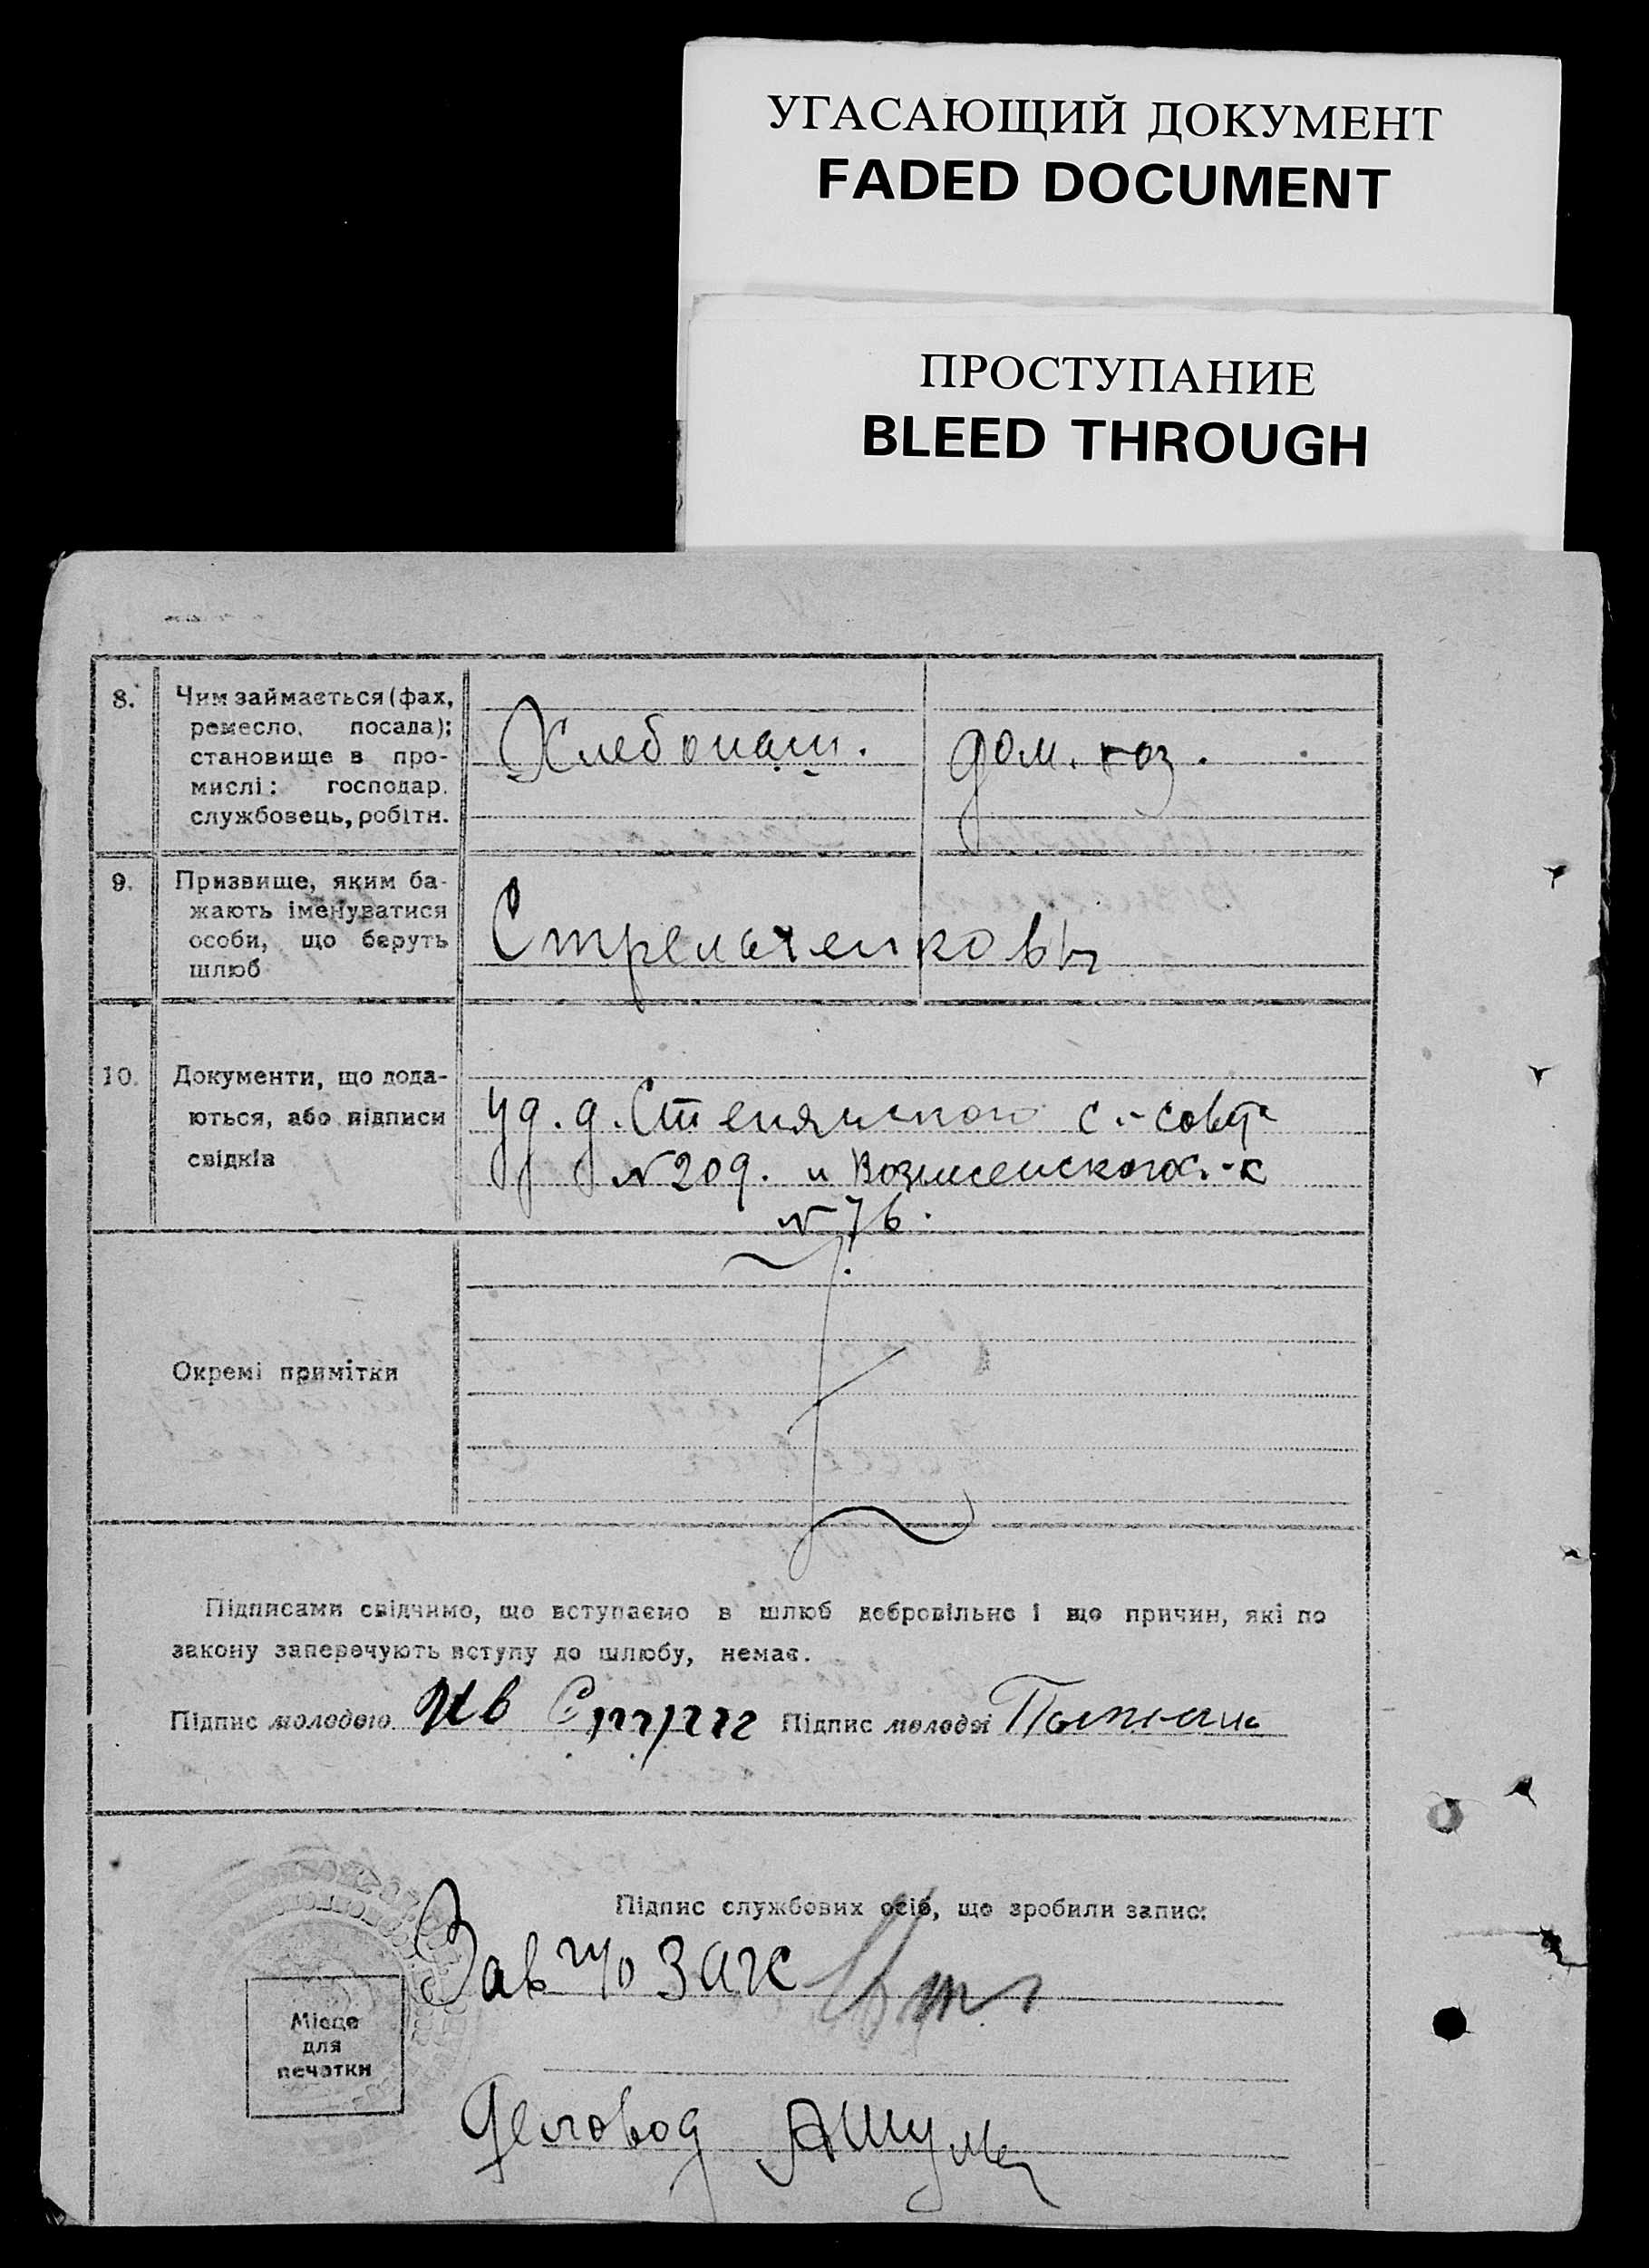 УГАСАЮЩИЙ ДОКУМЕНТ
FADED DOCUMENT
ПРОСТУПАНИЕ
BLEED THROUGH
8. Чим займається (фах,
ремесло, посада);
становище в про-
мислі: господар.
службовець, робітн.
Хлебопаш.
дом. хоз.
9. Призвище, яким ба-
жають іменуватися
особи, що беруть
шлюб
Стрельченковы
10. Документи, що дода-
ються, або підписи
свідків
Уд. д. с.-совет
N 209. и Вознесенского
N 76.
Окремі примітки
Підписами свідчимо, що вступаємо в шлюб добровільно і що причин, які по
закону заперечують вступу до шлюбу, немає.
Підпис молодого Ив Підпис молодої
Підпис службових осіб, що зробили запис:
Зав ЗАГС
Місце
для
печатки
Деловод